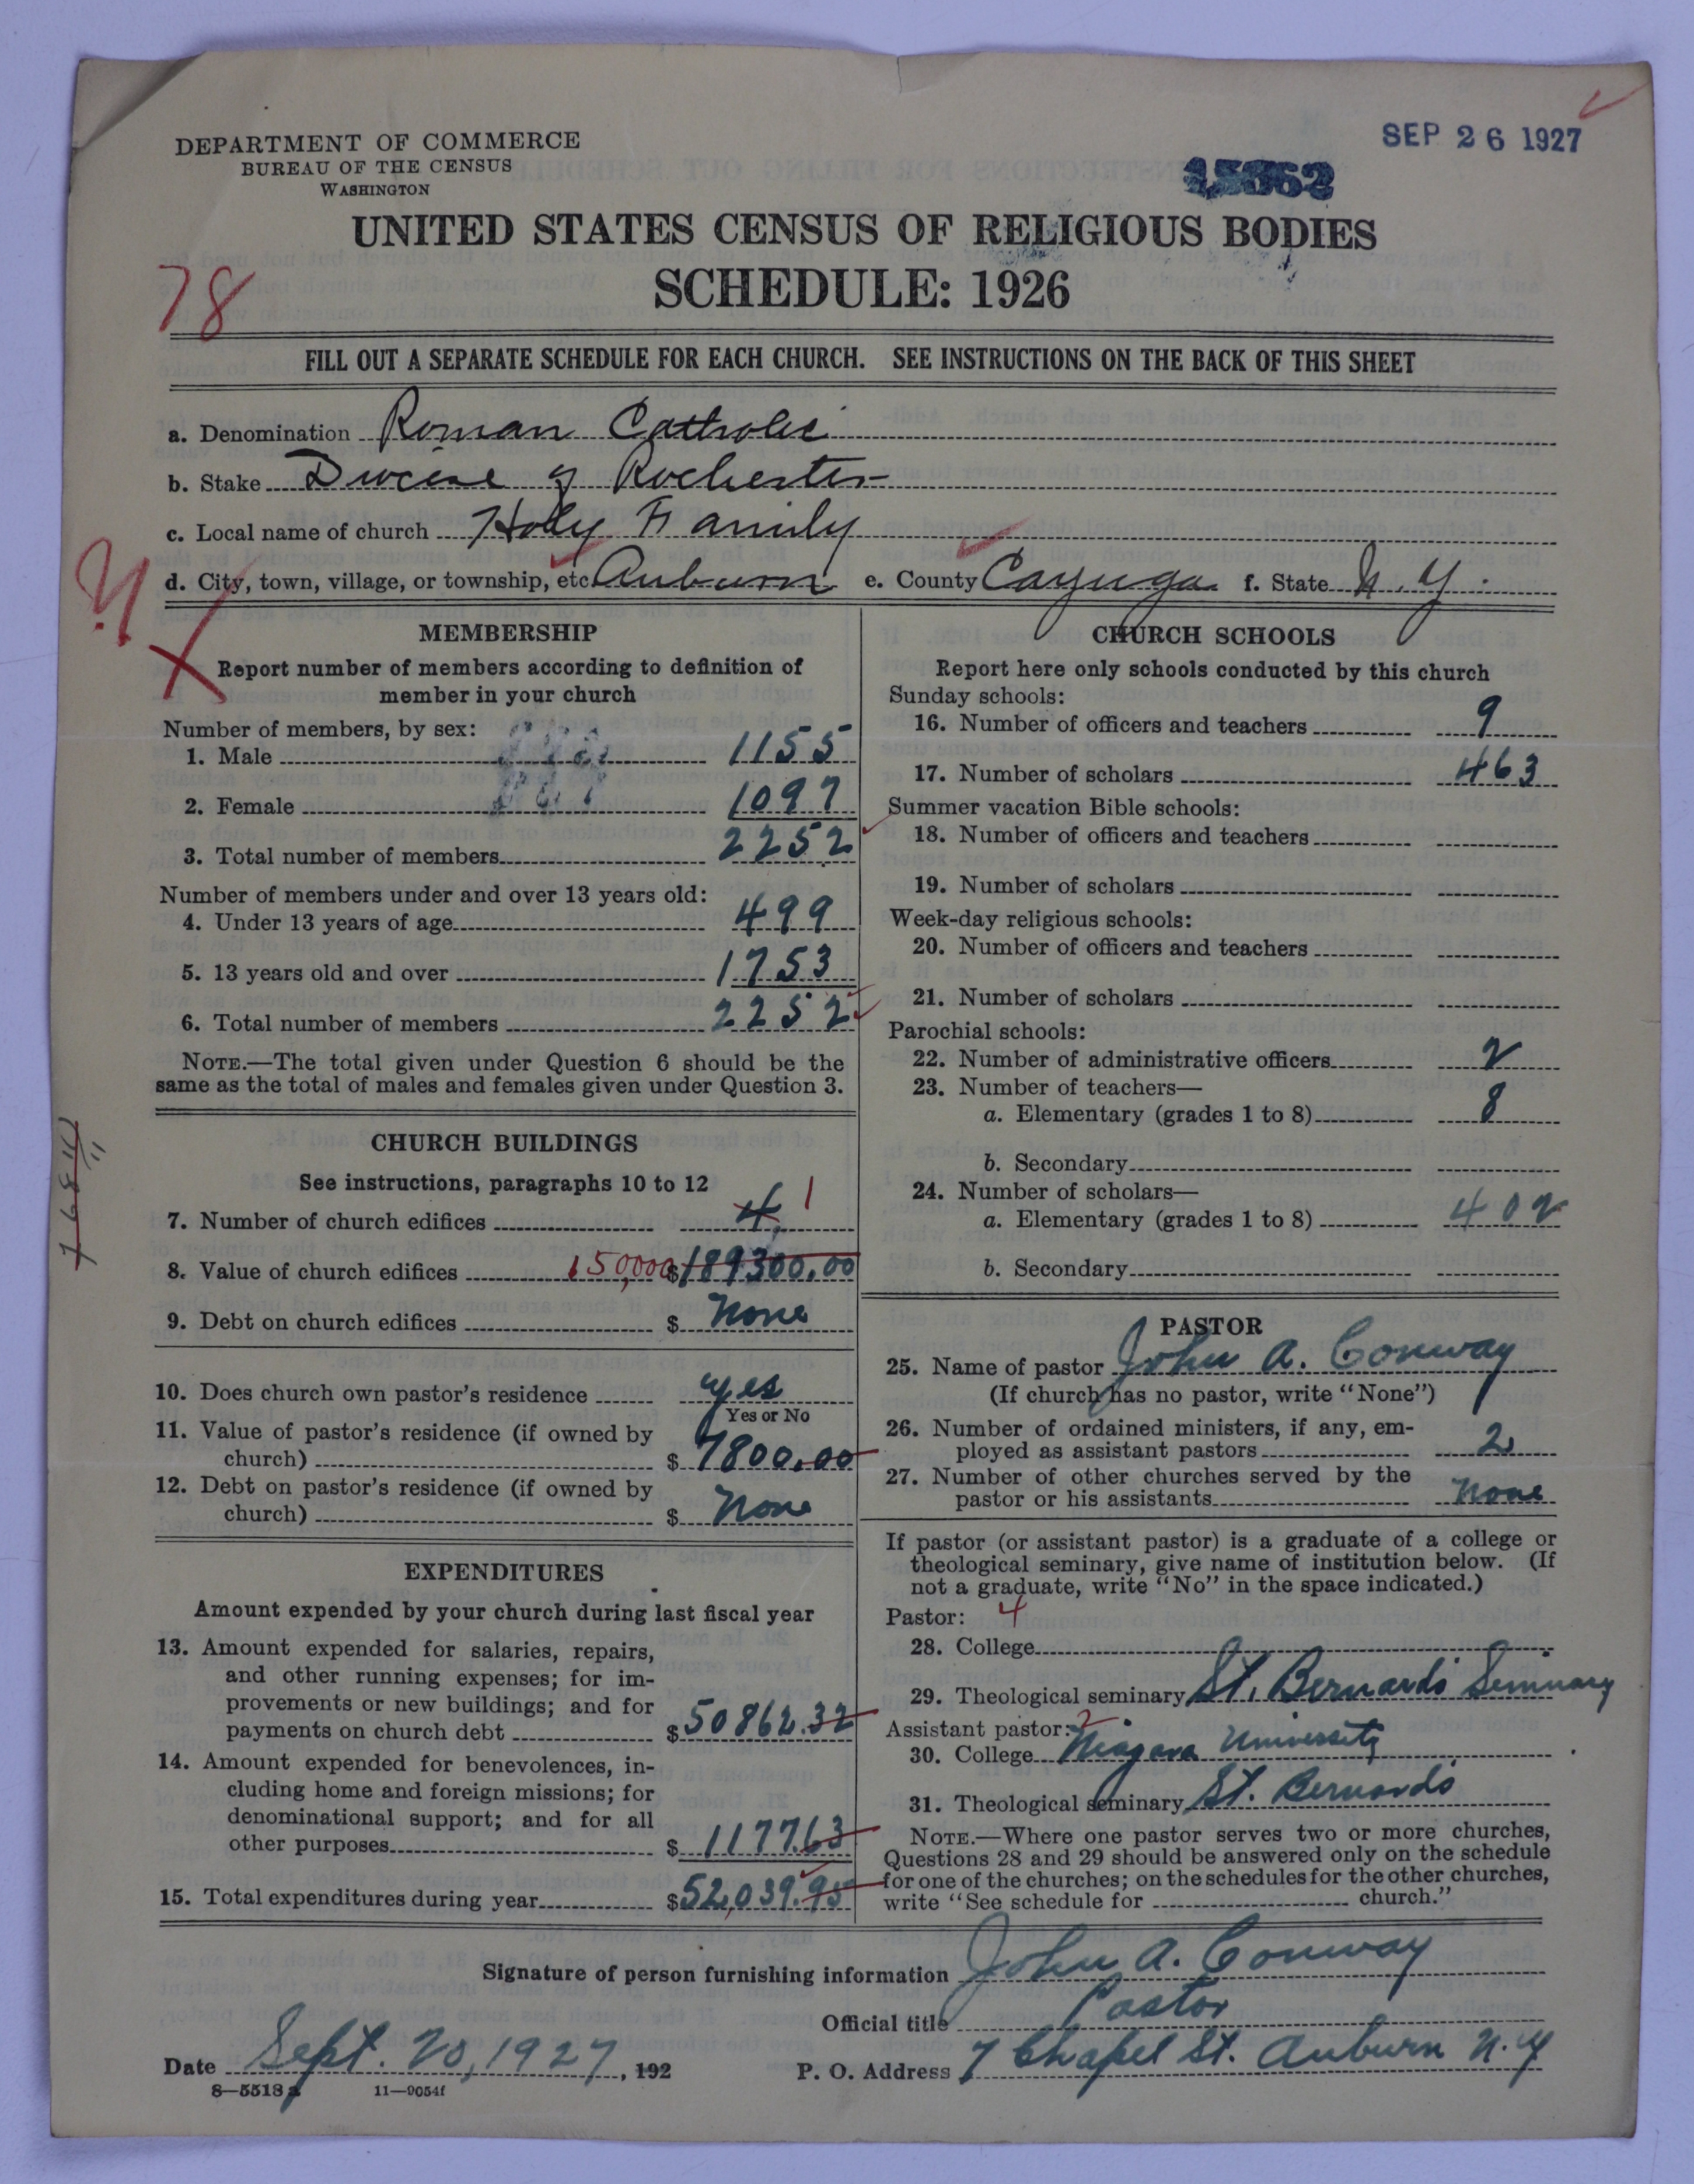 SEP 26 1927
DEPARTMENT OF COMMERCE
BUREAU OF THE CENSUS
WASHINGTON
15362
UNITED STATES CENSUS OF RELIGIOUS BODIES
SCHEDULE: 1926
78
FILL OUT A SEPARATE SCHEDULE FOR EACH CHURCH. SEE INSTRUCTIONS ON THE BACK OF THIS SHEET
a. Denomination Roman Catholic
b. Stake Diocese of Rochester
c. Local name of church Holy Family
d. City, town, village, or township, etc. Auburn e. County Cayuga f. State N.Y.
MEMBERSHIP
Report number of members according to definition of
member in your church
Number of members, by sex:
1. Male 1155
2. Female 1097
3. Total number of members 2252
Number of members under and over 13 years old:
4. Under 13 years of age 499
5. 13 years old and over 1753
6. Total number of members 2252
NOTE.—The total given under Question 6 should be the
same as the total of males and females given under Question 3.
CHURCH BUILDINGS
See instructions, paragraphs 10 to 12
7. Number of church edifices 4 1
8. Value of church edifices 150,000 $189300.00
9. Debt on church edifices $ None
10. Does church own pastor's residence yes
Yes or No
11. Value of pastor's residence (if owned by
church) $ 7800.00
12. Debt on pastor's residence (if owned by
church) $ None
EXPENDITURES
Amount expended by your church during last fiscal year
13. Amount expended for salaries, repairs,
and other running expenses; for im-
provements or new buildings; and for
payments on church debt $50862.32
14. Amount expended for benevolences, in-
cluding home and foreign missions; for
denominational support; and for all
other purposes $ 1177.63
15. Total expenditures during year $52,039.95
CHURCH SCHOOLS
Report here only schools conducted by this church
Sunday schools:
16. Number of officers and teachers 9
17. Number of scholars 463
Summer vacation Bible schools:
18. Number of officers and teachers
19. Number of scholars
Week-day religious schools:
20. Number of officers and teachers
21. Number of scholars
Parochial schools:
22. Number of administrative officers 2
23. Number of teachers—
a. Elementary (grades 1 to 8) 8
b. Secondary
24. Number of scholars—
a. Elementary (grades 1 to 8) 402
b. Secondary
PASTOR
25. Name of pastor John A. Conway
(If church has no pastor, write "None")
26. Number of ordained ministers, if any, em-
ployed as assistant pastors 2
27. Number of other churches served by the
pastor or his assistants None
If pastor (or assistant pastor) is a graduate of a college or
theological seminary, give name of institution below. (If
not a graduate, write "No" in the space indicated.)
Pastor: 4
28. College
29. Theological seminary St. Bernards Seminary
Assistant pastor: 2
30. College Niagara University
31. Theological seminary St. Bernards
NOTE.—Where one pastor serves two or more churches,
Questions 28 and 29 should be answered only on the schedule
for one of the churches; on the schedules for the other churches,
write "See schedule for church."
Signature of person furnishing information John A. Conway
Official title Pastor
Date Sept. 20, 1927, 192 P. O. Address 7 Chapel St. Auburn N.Y
8—5518 a 11—9054f